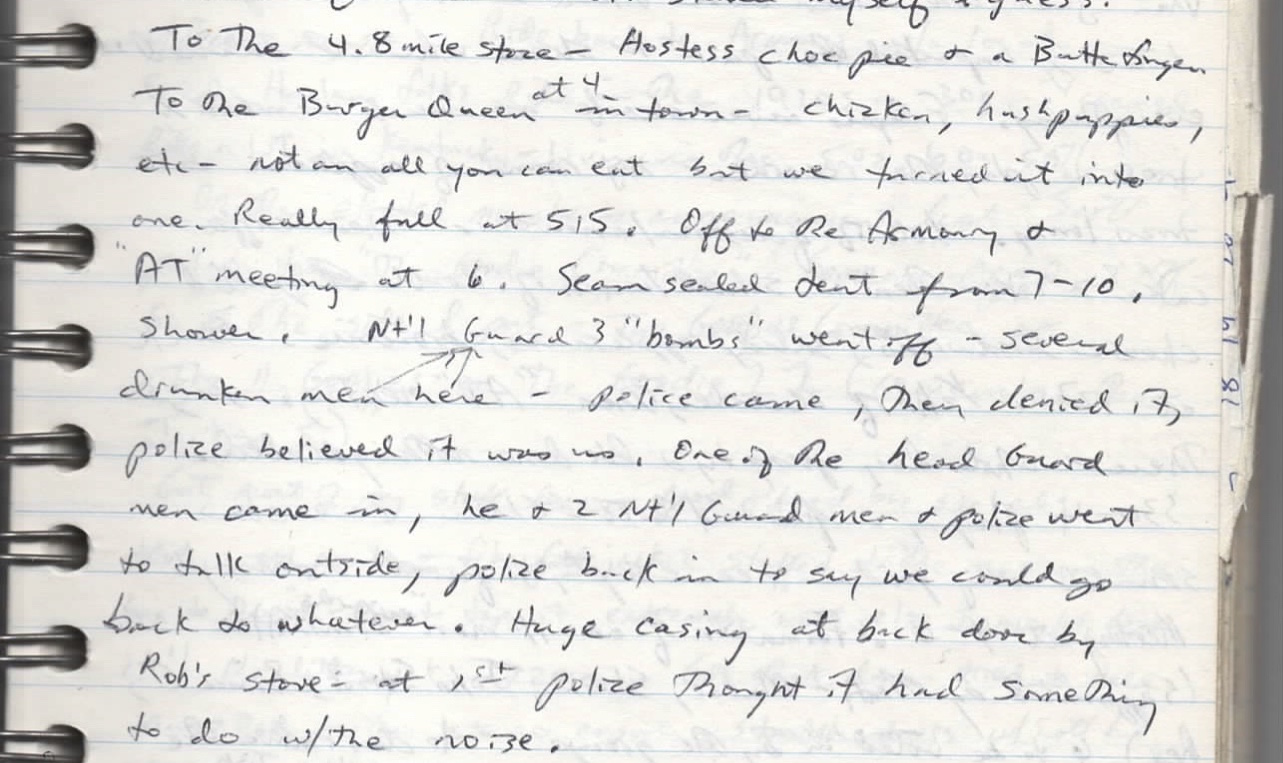 myself I guess.
To the 4.8 mile store - Hostess choc pie & a Butterfinger
To the Burger Queen at 4 in town - chicken, hushpuppies,
etc - not an all you can eat but we turned it into
one. Really full at 515. Off to the Armory &
"AT" meeting at 6. Seam sealed tent from 7-10.
Shower. Nt'l Guard 3 "bombs" went off - several
drunken men here - police came, they denied it,
police believed it was us. One of the head Guard
men came in, he & 2 Nt'l Guard men & police went
to talk outside, police back in to say we could go
back to whatever. Huge casing at back door by
Rob's stove - at 1st police thought it had something
to do w/the noise.